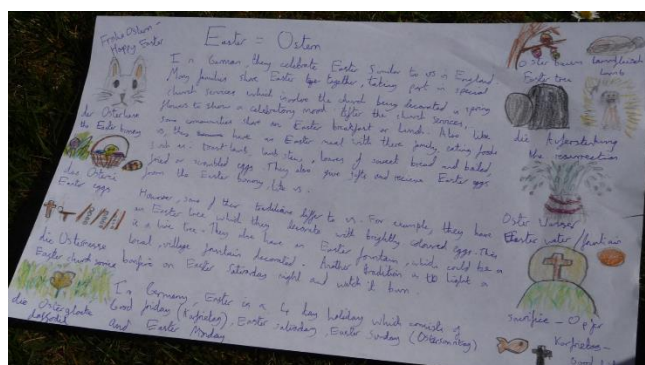 Frohe Ostern -
Happy Easter
Easter = Ostern
In German, they celebrate Easter similar to us in England.
Many families share Easter together, taking part in special
church services which involve the church being decorated in spring
flowers to show a celebratory mood. After the church services,
some communities share an Easter breakfast or lunch. Also, like
us, they have an Easter meal with there family, eating foods
such as: Roast lamb, lamb stew, a loaves of sweet bread and boiled,
fried or scrambled eggs. They also give gifts and recieve Easter eggs
from the Easter bunny, like us.
However, some of their traditions differ to us. For example, they have
an Easter tree which they decorate with brightly coloured eggs. This
is a live tree. They also have an Easter fountain, which could be a
local, village fountain decorated. Another tradition is to light a
bonfire on Easter Saturday night and watch it burn.
In Germany, Easter is a 4 day holiday which consists of
Good friday (Karfreitag), Easter saturday, Easter Sunday (Ostersonntag)
and Easter Monday
der Osterhase
the Easter bunny
das Osterei
Easter eggs
die Ostermesse
Easter church service
die Osterglocke
daffodil
Oster baum
Easter tree
lamb
die Auferstehung
the resurrection
Oster Wasser
Easter water / fountain
Sacrifice - Opfer
Karfreitag -